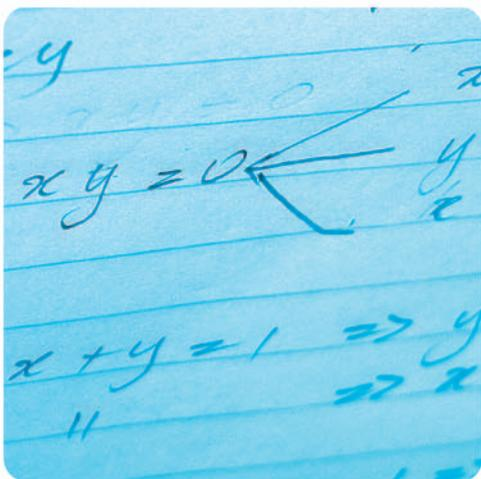 y
x
xy = 0
y
x
x + y = 1 => y
=> x
11